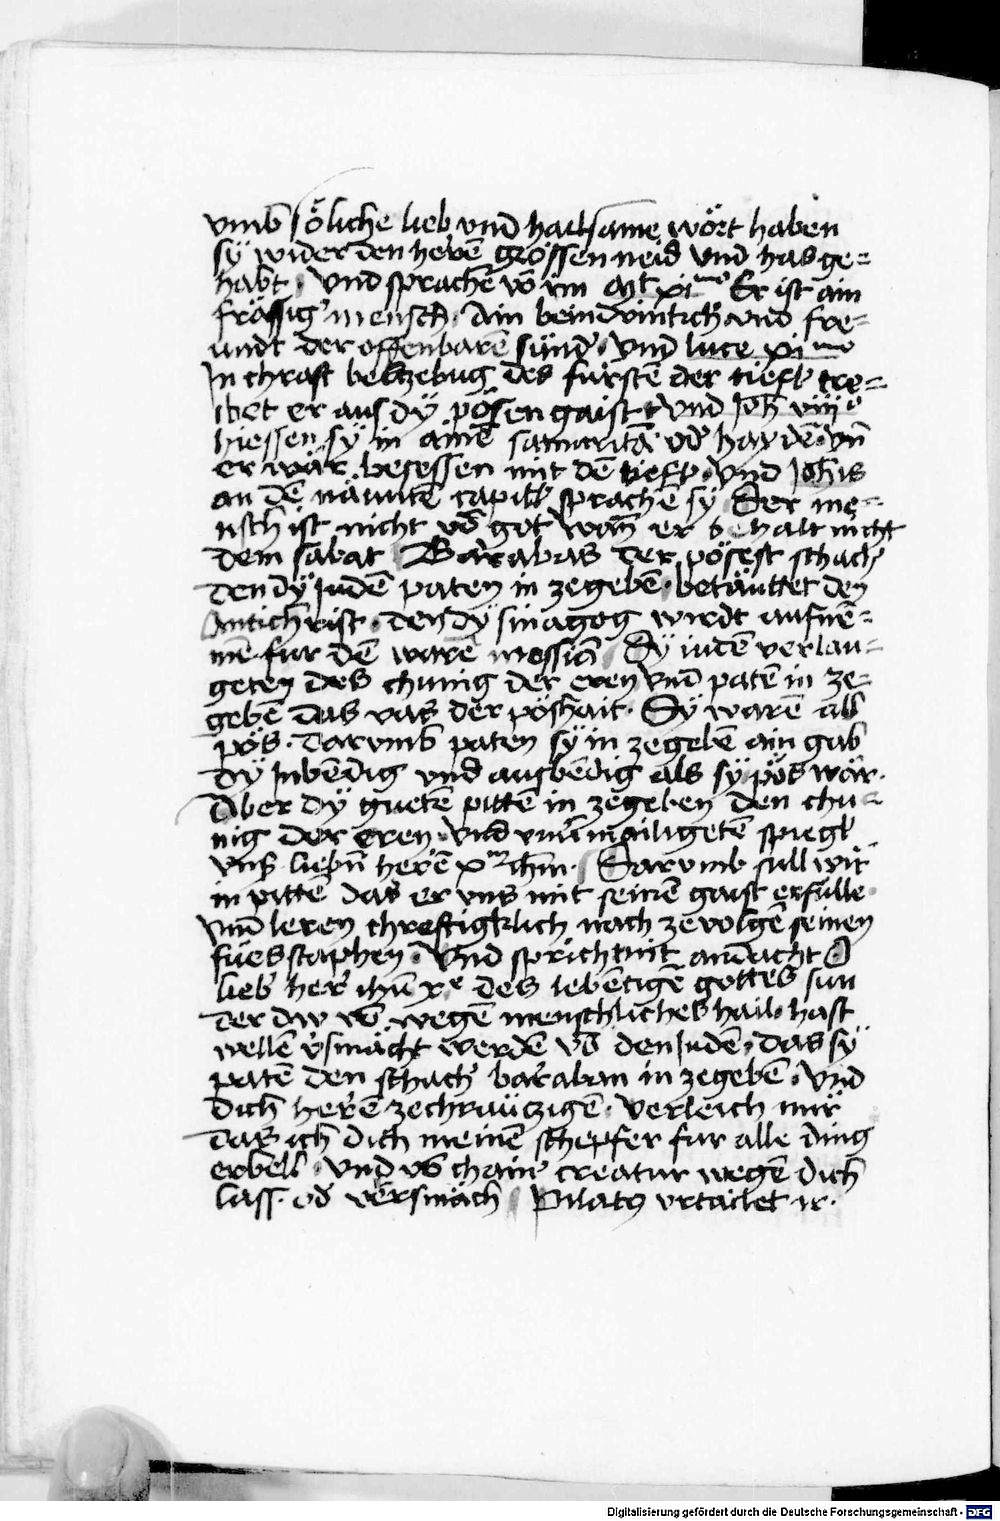 vmb söliche lieb vnd hailsame wört haben
sÿ wider den herē grössen neid vnd has ge=
habt · vnd sprachē vō im Mt xi^mo Er ist ain
frässig' mensch · Ain weindrinkch' vnd fre=
undt der offenbarē sünd' · vnd luce xi^mo
In chraft beltzebug des fürstē der tiefl tre=
ibet er aus dÿ pösen gaist · vnd Joh viii°
hiessen sÿ in ainē samaritā od' haydē · vn̄
er wär besessen mit dē tiefl · vnd Joh̄is
an dē näuntē capitl sprachē sÿ Der me=
nsch ist nicht vō got wan̄ er behalt nicht
dem sabat Barabas der pösest schach'
den dÿ Judē paten in zegebē · betäuttet den
Antichrist · den dÿ sinagog wirdt aufnē=
mē fur dē warē messiā Dÿ iudē verlau=
geten des chunig der eren vnd patē in ze=
gebē das vas der pöshait · Sÿ warē all
pös · darumb paten sÿ in zegebē ain gab
dÿ Inbēdig vnd ausbēdig als sÿ pös wär ·
Aber dÿ guetē pittē in zegeben den chu=
nig der eren · vnd vnuermailigetē spiegl
vns' liebn̄ herē x^m ihm · Darumb sull wir
in pittē das er vns mit seinē gaist erfulle ·
vnd leren chreftigklich nach zevolgē seinen
fuesstaphen · vnd sprich mit andacht O
lieb' her' ihū x^e des lebētigē gottes sun
der dw vō wegē menschliches hail · hast
wellē v'smächt werdē vō den Judē · das sÿ
patē den schach' baraban in zegebē · vnd
dich herē zechräutzigē · Verleich mir
das ich dich meinē schepfer fur alle ding
erbell · vnd vō chain' creatur wegē dich
lass · od' versmäch Pilatus vrtailet ir ·
Digitalisierung gefördert durch die Deutsche Forschungsgemeinschaft - DFG